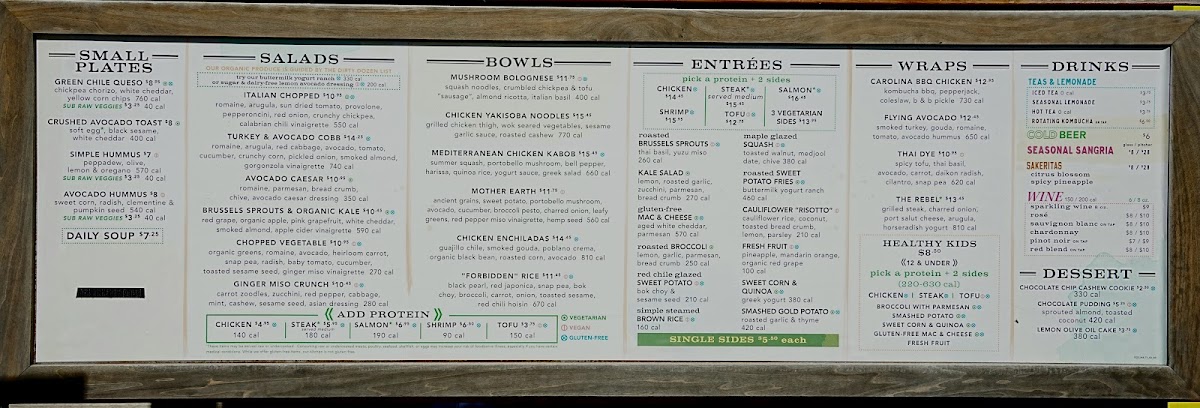 SMALL
PLATES
GREEN CHILE QUESO $8
chickpea chorizo, white cheddar,
yellow corn chips 760 cal
SUB RAW VEGGIES $3.25 40 cal
CRUSHED AVOCADO TOAST $8
soft egg*, black sesame,
white cheddar 400 cal
SIMPLE HUMMUS $7
peppadew, olive,
lemon & oregano 570 cal
SUB RAW VEGGIES $3.25 40 cal
AVOCADO HUMMUS $8
sweet corn, radish, clementine &
pumpkin seed 540 cal
SUB RAW VEGGIES $3.25 40 cal
DAILY SOUP $7.25
SALADS
OUR ORGANIC PRODUCE IS GUIDED BY THE DIRTY DOZEN LIST
try our buttermilk yogurt ranch 330 cal
or sugar & dairy-free lemon avocado dressing 200 cal
ITALIAN CHOPPED $10.95
romaine, arugula, sun dried tomato, provolone,
pepperoncini, red onion, crunchy chickpea,
calabrian chili vinaigrette 550 cal
TURKEY & AVOCADO COBB $14.25
romaine, arugula, red cabbage, avocado, tomato,
cucumber, crunchy corn, pickled onion, smoked almond,
gorgonzola vinaigrette 740 cal
AVOCADO CAESAR $10.95
romaine, parmesan, bread crumb,
chive, avocado caesar dressing 350 cal
BRUSSELS SPROUTS & ORGANIC KALE $10.95
red grape, organic apple, pink grapefruit, white cheddar,
smoked almond, apple cider vinaigrette 590 cal
CHOPPED VEGETABLE $10.95
organic greens, romaine, avocado, heirloom carrot,
snap pea, radish, baby tomato, cucumber,
toasted sesame seed, ginger miso vinaigrette 270 cal
GINGER MISO CRUNCH $10.95
carrot zoodles, zucchini, red pepper, cabbage,
mint, cashew, sesame seed, asian dressing 280 cal
BOWLS
MUSHROOM BOLOGNESE $11.75
squash noodles, crumbled chickpea & tofu
"sausage", almond ricotta, italian basil 400 cal
CHICKEN YAKISOBA NOODLES $15.45
grilled chicken thigh, wok seared vegetables, sesame
garlic sauce, roasted cashew 770 cal
MEDITERRANEAN CHICKEN KABOB $15.45
summer squash, portobello mushroom, bell pepper,
harissa, quinoa rice, yogurt sauce, greek salad 660 cal
MOTHER EARTH $11.75
ancient grains, sweet potato, portobello mushroom,
avocado, cucumber, broccoli pesto, charred onion, leafy
greens, red pepper miso vinaigrette, hemp seed 360 cal
CHICKEN ENCHILADAS $14.45
guajillo chile, smoked gouda, poblano crema,
organic black bean, roasted corn, avocado 810 cal
"FORBIDDEN" RICE $11.45
black pearl, red japonica, snap pea, bok
choy, broccoli, carrot, onion, toasted sesame,
red chili hoisin 670 cal
ADD PROTEIN
CHICKEN $4.95
140 cal
STEAK* $5.95
served medium
180 cal
SALMON* $6.95
190 cal
SHRIMP $6.50
90 cal
TOFU $3.75
150 cal
VEGETARIAN
VEGAN
GLUTEN-FREE
ENTRÉES
pick a protein + 2 sides
CHICKEN
$14.45
STEAK*
served medium
$15.45
SALMON*
$16.45
SHRIMP
$15.95
TOFU
$12.75
3 VEGETARIAN
SIDES $13.25
roasted
BRUSSELS SPROUTS
thai basil, yuzu miso
260 cal
KALE SALAD
lemon, roasted garlic,
zucchini, parmesan,
bread crumb 270 cal
gluten-free
MAC & CHEESE
aged white cheddar,
parmesan 570 cal
roasted BROCCOLI
lemon, garlic, parmesan,
bread crumb 250 cal
red chile glazed
SWEET POTATO
bok choy &
sesame seed 210 cal
simple steamed
BROWN RICE
160 cal
maple glazed
SQUASH
toasted walnut, medjool
date, chive 380 cal
roasted SWEET
POTATO FRIES
buttermilk yogurt ranch
460 cal
CAULIFLOWER "RISOTTO"
cauliflower rice, coconut,
toasted bread crumb,
lemon, parsley 210 cal
FRESH FRUIT
pineapple, mandarin orange,
organic red grape
100 cal
SWEET CORN &
QUINOA
greek yogurt 380 cal
SMASHED GOLD POTATO
roasted garlic & thyme
420 cal
SINGLE SIDES $5.50 each
WRAPS
CAROLINA BBQ CHICKEN $12.95
kombucha bbq, pepperjack,
coleslaw, b & b pickle 730 cal
FLYING AVOCADO $12.45
smoked turkey, gouda, romaine,
tomato, avocado hummus 650 cal
THAI DYE $10.95
spicy tofu, thai basil,
avocado, carrot, daikon radish,
cilantro, snap pea 620 cal
THE REBEL* $13.45
grilled steak, charred onion,
port salut cheese, arugula,
horseradish yogurt 810 cal
HEALTHY KIDS
$8.50
12 & UNDER
pick a protein + 2 sides
(220-630 cal)
CHICKEN | STEAK | TOFU
BROCCOLI WITH PARMESAN
SMASHED POTATO
SWEET CORN & QUINOA
GLUTEN-FREE MAC & CHEESE
FRESH FRUIT
DRINKS
TEAS & LEMONADE
ICED TEA 0 cal
SEASONAL LEMONADE
HOT TEA 0 cal
ROTATING KOMBUCHA
COLD BEER $6
SEASONAL SANGRIA
$8 / $28
SAKERITAS $8 / $28
citrus blossom
spicy pineapple
WINE 150 / 200 cal
sparkling wine $9
rosé $8 / $10
sauvignon blanc ON TAP $8 / $10
chardonnay $8 / $10
pinot noir ON TAP $7 / $9
red blend ON TAP $8 / $10
DESSERT
CHOCOLATE CHIP CASHEW COOKIE $2.50
330 cal
CHOCOLATE PUDDING $5.50
sprouted almond, toasted
coconut 420 cal
LEMON OLIVE OIL CAKE $3.75
380 cal